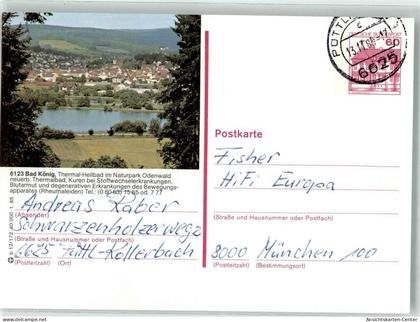 PÜTTL
6625
DEUTSCHE BUNDESPOST
60
Postkarte
6123 Bad König, Thermal-Heilbad im Naturpark Odenwald
neuerb. Thermalbad, Kuren bei Stoffwechselerkrankungen,
Blutarmut und degenerativen Erkrankungen des Bewegungs-
apparates (Rheumaleiden) Tel.: (0 60 63) 15 65 od. 7 77
Andreas Raber
(Absender)
Schwarzenholzerweg 2
(Straße und Hausnummer oder Postfach)
6625 Püttl-Kollerbach
(Postleitzahl) (Ort)
Fisher
HiFi Europa
(Straße und Hausnummer oder Postfach)
8000 München 100
(Postleitzahl) (Bestimmungsort)
12/172 40 000 1.85
Ansichtskarten-Center